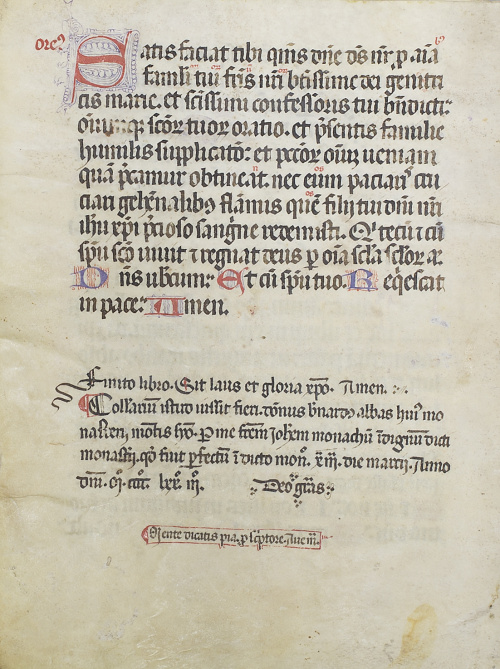 Satis faciat tibi qms dn̄e ds̄ nr̄ p aīa
famłi tuī fr̄is nrī btīssime dei genitri
cis marie. et scīssimi confessoris tui bn̄dicti:
oīumqȝ scōꝝ tuoꝝ oratio. et pn̄sentis familie
humilis supplicatō: et pccōꝝ oīuȝ ueniam
quā pcamur obtineāt. nec eum paciaris cru
ciari gehēnalibꝰ flāmis quē filij tui dnī nrī
ihu xp̄i p̄cioso sanḡne redemisti. Qⁱ tecū ⁊ cū
spū scō uiuit ⁊ regnat deus p oīa scla sclōꝝ am̄.
Dn̄s ubcum: Et cū spū tuo. Reqescat
in pace: Amen.
Finito libro. Sit laus et gloria xp̄o. Amen.
Collctariū istud iussit fieri. dōnus bn̄ardꝰ abbas huiꝰ mo
nasterij, montis. Per me frēm Johem monachū īdignū dicti
monastīj. qd̄ fuit pfectū ī dicto mon̄. xiij. die marcij. Anno
dnī. mº. cccº. lxxº iijº. Deo grās.
Mente dicatis pia. p scptore. Aue mª.